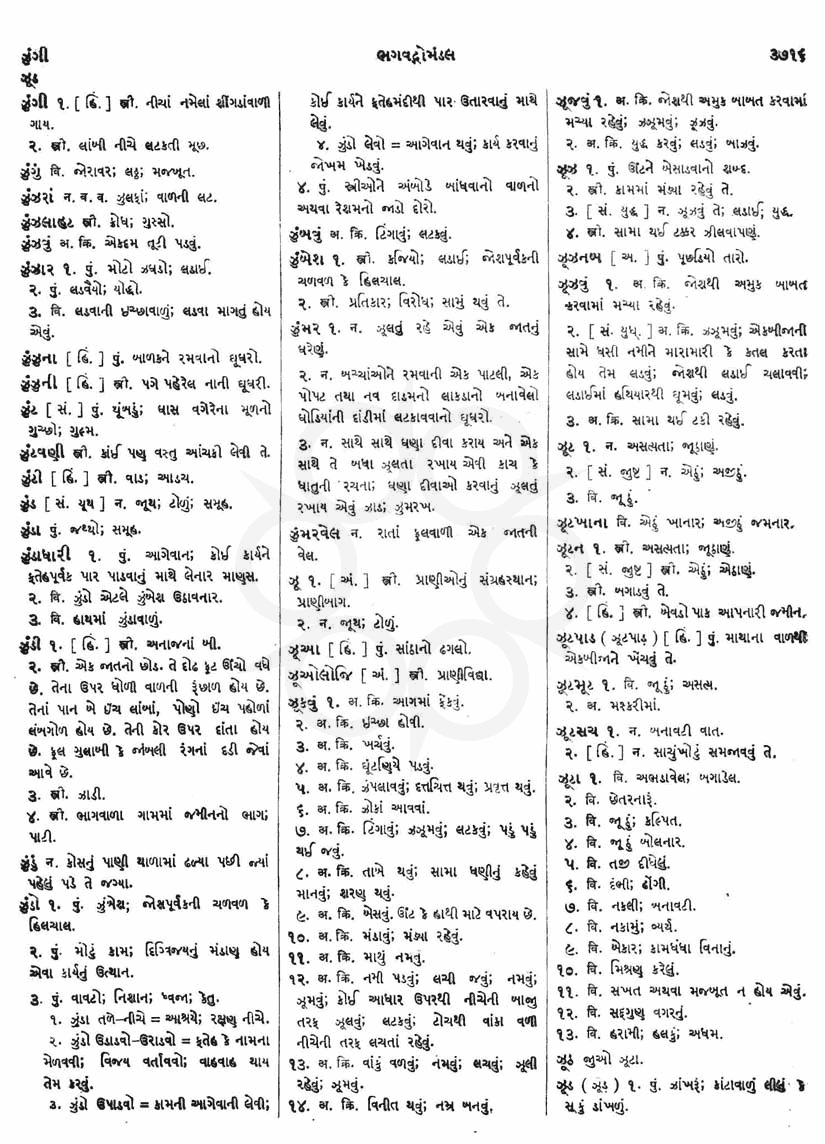 ઝુંગી
ભગવદ્ગોમંડલ
૩૭૧૬
ઝૂડ
ઝુંગી ૧. [ હિં. ] સ્ત્રી. નીચાં નમેલાં શીંગડાંવાળી
ગાય.
૨. સ્ત્રી. લાંબી નીચે લટકતી મૂછ.
ઝુંગું વિ. જોરાવર; લઠ્ઠ; મજબૂત.
ઝુંઝરાં ન. બ. વ. ઝુલફાં; વાળની લટ.
ઝુંઝલાહટ સ્ત્રી. ક્રોધ; ગુસ્સો.
ઝુંઝવું અ. ક્રિ. એકદમ તૂટી પડવું.
ઝુંઝાર ૧. પું. મોટો ઝઘડો; લડાઈ.
૨. પું. લડવૈયો; યોદ્ધો.
૩. વિ. લડવાની ઇચ્છાવાળું; લડવા માગતું હોય
એવું.
ઝુંઝુના [ હિં. ] પું. બાળકને રમવાનો ઘૂઘરો.
ઝુંઝુની [ હિં. ] સ્ત્રી. પગે પહેરેલ નાની ઘૂઘરી.
ઝુંટ [ સં. ] પું. ચૂંબડું; ઘાસ વગેરેના મૂળનો
ગુચ્છો; ગુલ્મ.
ઝુંટવણી સ્ત્રી. કાંઈ પણ વસ્તુ આંચકી લેવી તે.
ઝુંટી [ હિં. ] સ્ત્રી. વાડ; આડચ.
ઝુંડ [ સં. યૂથ ] ન. જૂથ; ટોળું; સમૂહ.
ઝુંડા પું. જથ્થો; સમૂહ.
ઝુંડાધારી ૧. પું. આગેવાન; કોઈ કાર્યને
ફતેહપૂર્વક પાર પાડવાનું માથે લેનાર માણસ.
૨. વિ. ઝુંડો એટલે ઝુંબેશ ઉઠાવનાર.
૩. વિ. હાથમાં ઝુંડાવાળું.
ઝુંડી ૧. [ હિં. ] સ્ત્રી. અનાજનાં બી.
૨. સ્ત્રી. એક જાતનો છોડ. તે દોઢ ફૂટ ઊંચો વધે
છે. તેના ઉપર ધોળી વાળની રૂંછાળ હોય છે.
તેનાં પાન બે ઇંચ લાંબાં, પોણો ઇંચ પહોળાં
લંબગોળ હોય છે. તેની કોર ઉપર દાંતા હોય
છે. ફૂલ ગુલાબી કે જાંબલી રંગનાં દડી જેવાં
આવે છે.
૩. સ્ત્રી. ઝાડી.
૪. સ્ત્રી. ભાગવાળા ગામમાં જમીનનો ભાગ;
પાટી.
ઝુંડું ન. કોસનું પાણી થાળામાં ઢળ્યા પછી જ્યાં
પહેલું પડે તે જગ્યા.
ઝુંડો ૧. પું. ઝુંબેશ; જોશપૂર્વકની ચળવળ કે
હિલચાલ.
૨. પું. મોટું કામ; દિગ્વિજયનું મંડાણ હોય
એવા કાર્યનું ઉત્થાન.
૩. પું. વાવટો; નિશાન; ધ્વજા; કેતુ.
૧. ઝુંડા તળે–નીચે = આશ્રયે; રક્ષણ નીચે.
૨. ઝુંડો ઉડાવવો–ઉરાડવો = ફતેહ કે નામના
મેળવવી; વિજય વર્તાવવો; વાહવાહ થાય
તેમ કરવું.
૩. ઝુંડો ઉપાડવો = કામની આગેવાની લેવી;
કોઈ કાર્યને ફતેહમંદીથી પાર ઉતારવાનું માથે
લેવું.
૪. ઝુંડો લેવો = આગેવાન થવું; કાર્ય કરવાનું
જોખમ ખેડવું.
૪. પું. સ્ત્રીઓને અંબોડે બાંધવાનો વાળનો
અથવા રેશમનો જાડો દોરો.
ઝુંબવું અ. ક્રિ. ટિંગાવું; લટકવું.
ઝુંબેશ ૧. સ્ત્રી. કજિયો; લડાઈ; જોશપૂર્વકની
ચળવળ કે હિલચાલ.
૨. સ્ત્રી. પ્રતિકાર; વિરોધ; સામું થવું તે.
ઝુંમર ૧. ન. ઝૂલતું રહે એવું એક જાતનું
ઘરેણું.
૨. ન. બચ્ચાંઓને રમવાની એક પાટલી, એક
પોપટ તથા નવ દાડમનો લાકડાનો બનાવેલો
ઘોડિયાંની દાંડીમાં લટકાવવાનો ઘૂઘરો.
૩. ન. સાથે સાથે ઘણા દીવા કરાય અને એક
સાથે તે બધા ઝૂલતા રખાય એવી કાચ કે
ધાતુની રચના; ઘણા દીવાઓ કરવાનું ઝૂલતું
રખાય એવું ઝાડ; ઝુમરખ.
ઝુંમરવેલ ન. રાતાં ફૂલવાળી એક જાતની
વેલ.
ઝૂ ૧. [ અં. ] સ્ત્રી. પ્રાણીઓનું સંગ્રહસ્થાન;
પ્રાણીબાગ.
૨. ન. જૂથ; ટોળું.
ઝૂઆ [ હિં. ] પું. સાંઠાનો ઢગલો.
ઝૂઓલોજિ [ અં. ] સ્ત્રી. પ્રાણીવિદ્યા.
ઝૂકવું ૧. અ. ક્રિ. આગમાં ફેંકવું.
૨. અ. ક્રિ. ઇચ્છા હોવી.
૩. અ. ક્રિ. ખર્ચવું.
૪. અ. ક્રિ. ઘૂંટણિયે પડવું.
૫. અ. ક્રિ. ઝંપલાવવું; દત્તચિત્ત થવું; પ્રવૃત્ત થવું.
૬. અ. ક્રિ. ઝોકાં આવવાં.
૭. અ. ક્રિ. ટિંગાવું; ઝઝૂમવું; લટકવું; પડું પડું
થઈ જવું.
૮. અ. ક્રિ. તાબે થવું; સામા ધણીનું કહેવું
માનવું; શરણ થવું.
૯. અ. ક્રિ. બેસવું. ઊંટ કે હાથી માટે વપરાય છે.
૧૦. અ. ક્રિ. મંડાવું; મંડ્યા રહેવું.
૧૧. અ. ક્રિ. માથું નમવું.
૧૨. અ. ક્રિ. નમી પડવું; લચી જવું; નમવું;
ઝૂમવું; કોઈ આધાર ઉપરથી નીચેની બાજુ
તરફ ઝૂલવું; લટકવું; ટોચથી વાંકા વળી
નીચેની તરફ લચતાં રહેવું.
૧૩. અ. ક્રિ. વાંકું વળવું; નમવું; લચવું; ઝૂલી
રહેવું; ઝૂમવું.
૧૪. અ. ક્રિ. વિનીત થવું; નમ્ર બનવું.
ઝૂજવું ૧. અ. ક્રિ. જોશથી અમુક બાબત કરવામાં
મચ્યા રહેવું; ઝઝૂમવું; ઝૂઝવું.
૨. અ. ક્રિ. યુદ્ધ કરવું; લડવું; બાઝવું.
ઝૂઝ ૧. પું. ઊંટને બેસાડવાનો શબ્દ.
૨. સ્ત્રી. કામમાં મંડ્યા રહેવું તે.
૩. [ સં. યુદ્ધ ] ન. ઝૂઝવું તે; લડાઈ; યુદ્ધ.
૪. સ્ત્રી. સામા થઈ ટક્કર ઝીલવાપણું.
ઝૂઝનબ [ અ. ] પું. પૂછડિયો તારો.
ઝૂઝવું ૧. અ. ક્રિ. જોશથી અમુક બાબત
કરવામાં મચ્યા રહેવું.
૨. [ સં. યુધ્. ] અ. ક્રિ. ઝઝૂમવું; એકબીજાની
સામે ધસી નમીને મારામારી કે કતલ કરતા
હોય તેમ લડવું; જોશથી લડાઈ ચલાવવી;
લડાઈમાં હથિયારથી ઘૂમવું; લડવું.
૩. અ. ક્રિ. સામા થઈ ટકી રહેવું.
ઝૂટ ૧. ન. અસત્યતા; જૂઠાણું.
૨. [ સં. જુષ્ટ ] ન. એઠું; અજીઠું.
૩. વિ. જૂઠું.
ઝૂટખાના વિ. એઠું ખાનાર; અજીઠું જમનાર.
ઝૂટન ૧. સ્ત્રી. અસત્યતા; જૂઠાણું.
૨. [ સં. જુષ્ટ ] સ્ત્રી. એઠું; એઠાણું.
૩. સ્ત્રી. બગાડવું તે.
૪. [ હિં. ] સ્ત્રી. બેવડો પાક આપનારી જમીન.
ઝૂટપાડ ( ઝૂટપાઢ ) [ હિં. ] પું. માથાના વાળથી
એકબીજાને ખેંચવું તે.
ઝૂટમૂટ ૧. વિ. જૂઠું; અસત્ય.
૨. અ. મશ્કરીમાં.
ઝૂટસચ ૧. ન. બનાવટી વાત.
૨. [ હિં. ] ન. સાચુંખોટું સમજાવવું તે.
ઝૂટા ૧. વિ. અભડાવેલ; બગાડેલ.
૨. વિ. છેતરનારૂં.
૩. વિ. જૂઠું; કલ્પિત.
૪. વિ. જૂઠું બોલનાર.
૫. વિ. તજી દીધેલું.
૬. વિ. દંભી; ઢોંગી.
૭. વિ. નકલી; બનાવટી.
૮. વિ. નકામું; વ્યર્થ.
૯. વિ. બેકાર; કામધંધા વિનાનું.
૧૦. વિ. મિશ્રણ કરેલું.
૧૧. વિ. સખત અથવા મજબૂત ન હોય એવું.
૧૨. વિ. સદ્ગુણ વગરનું.
૧૩. વિ. હરામી; હલકું; અધમ.
ઝૂઠ જુઓ ઝૂટા.
ઝૂડ ( ઝૂડ ) ૧. પું. ઝાંખરૂં; કાંટાવાળું લીલું કે
સૂકું ડાંખળું.